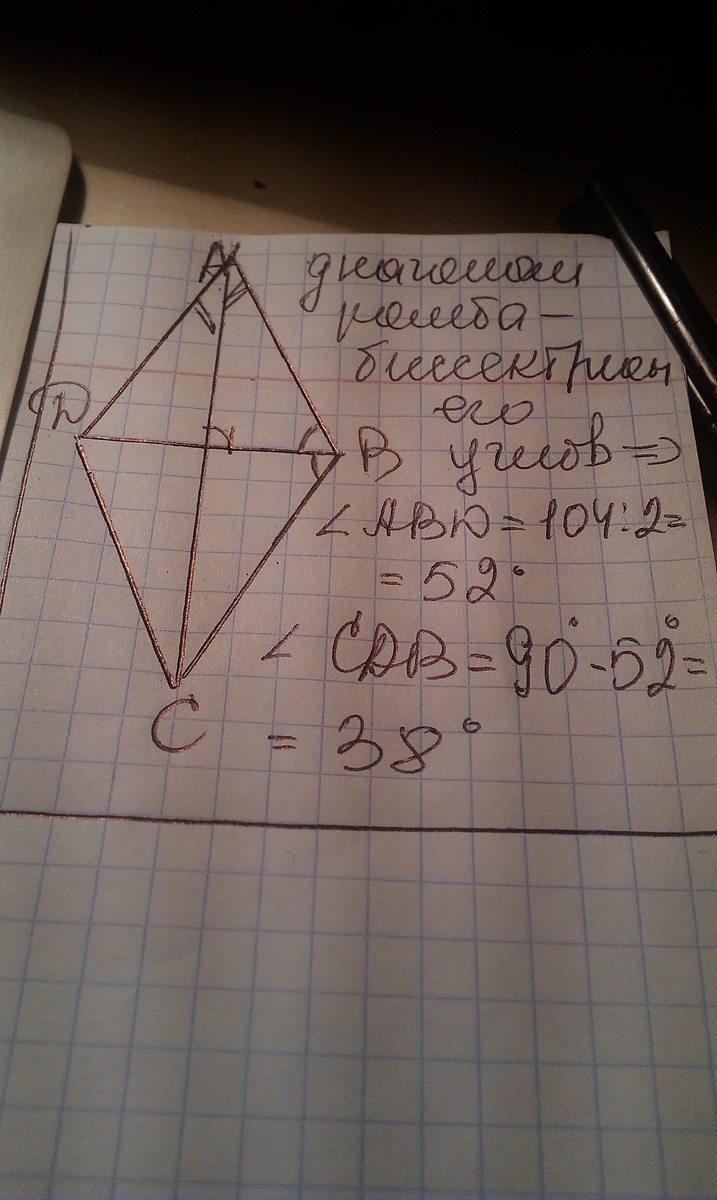 A диагонали
ромба -
биссектрисы
D его
B углов =>
∠ABD = 104:2=
= 52°
∠ CDB = 90° - 52° =
C = 38°